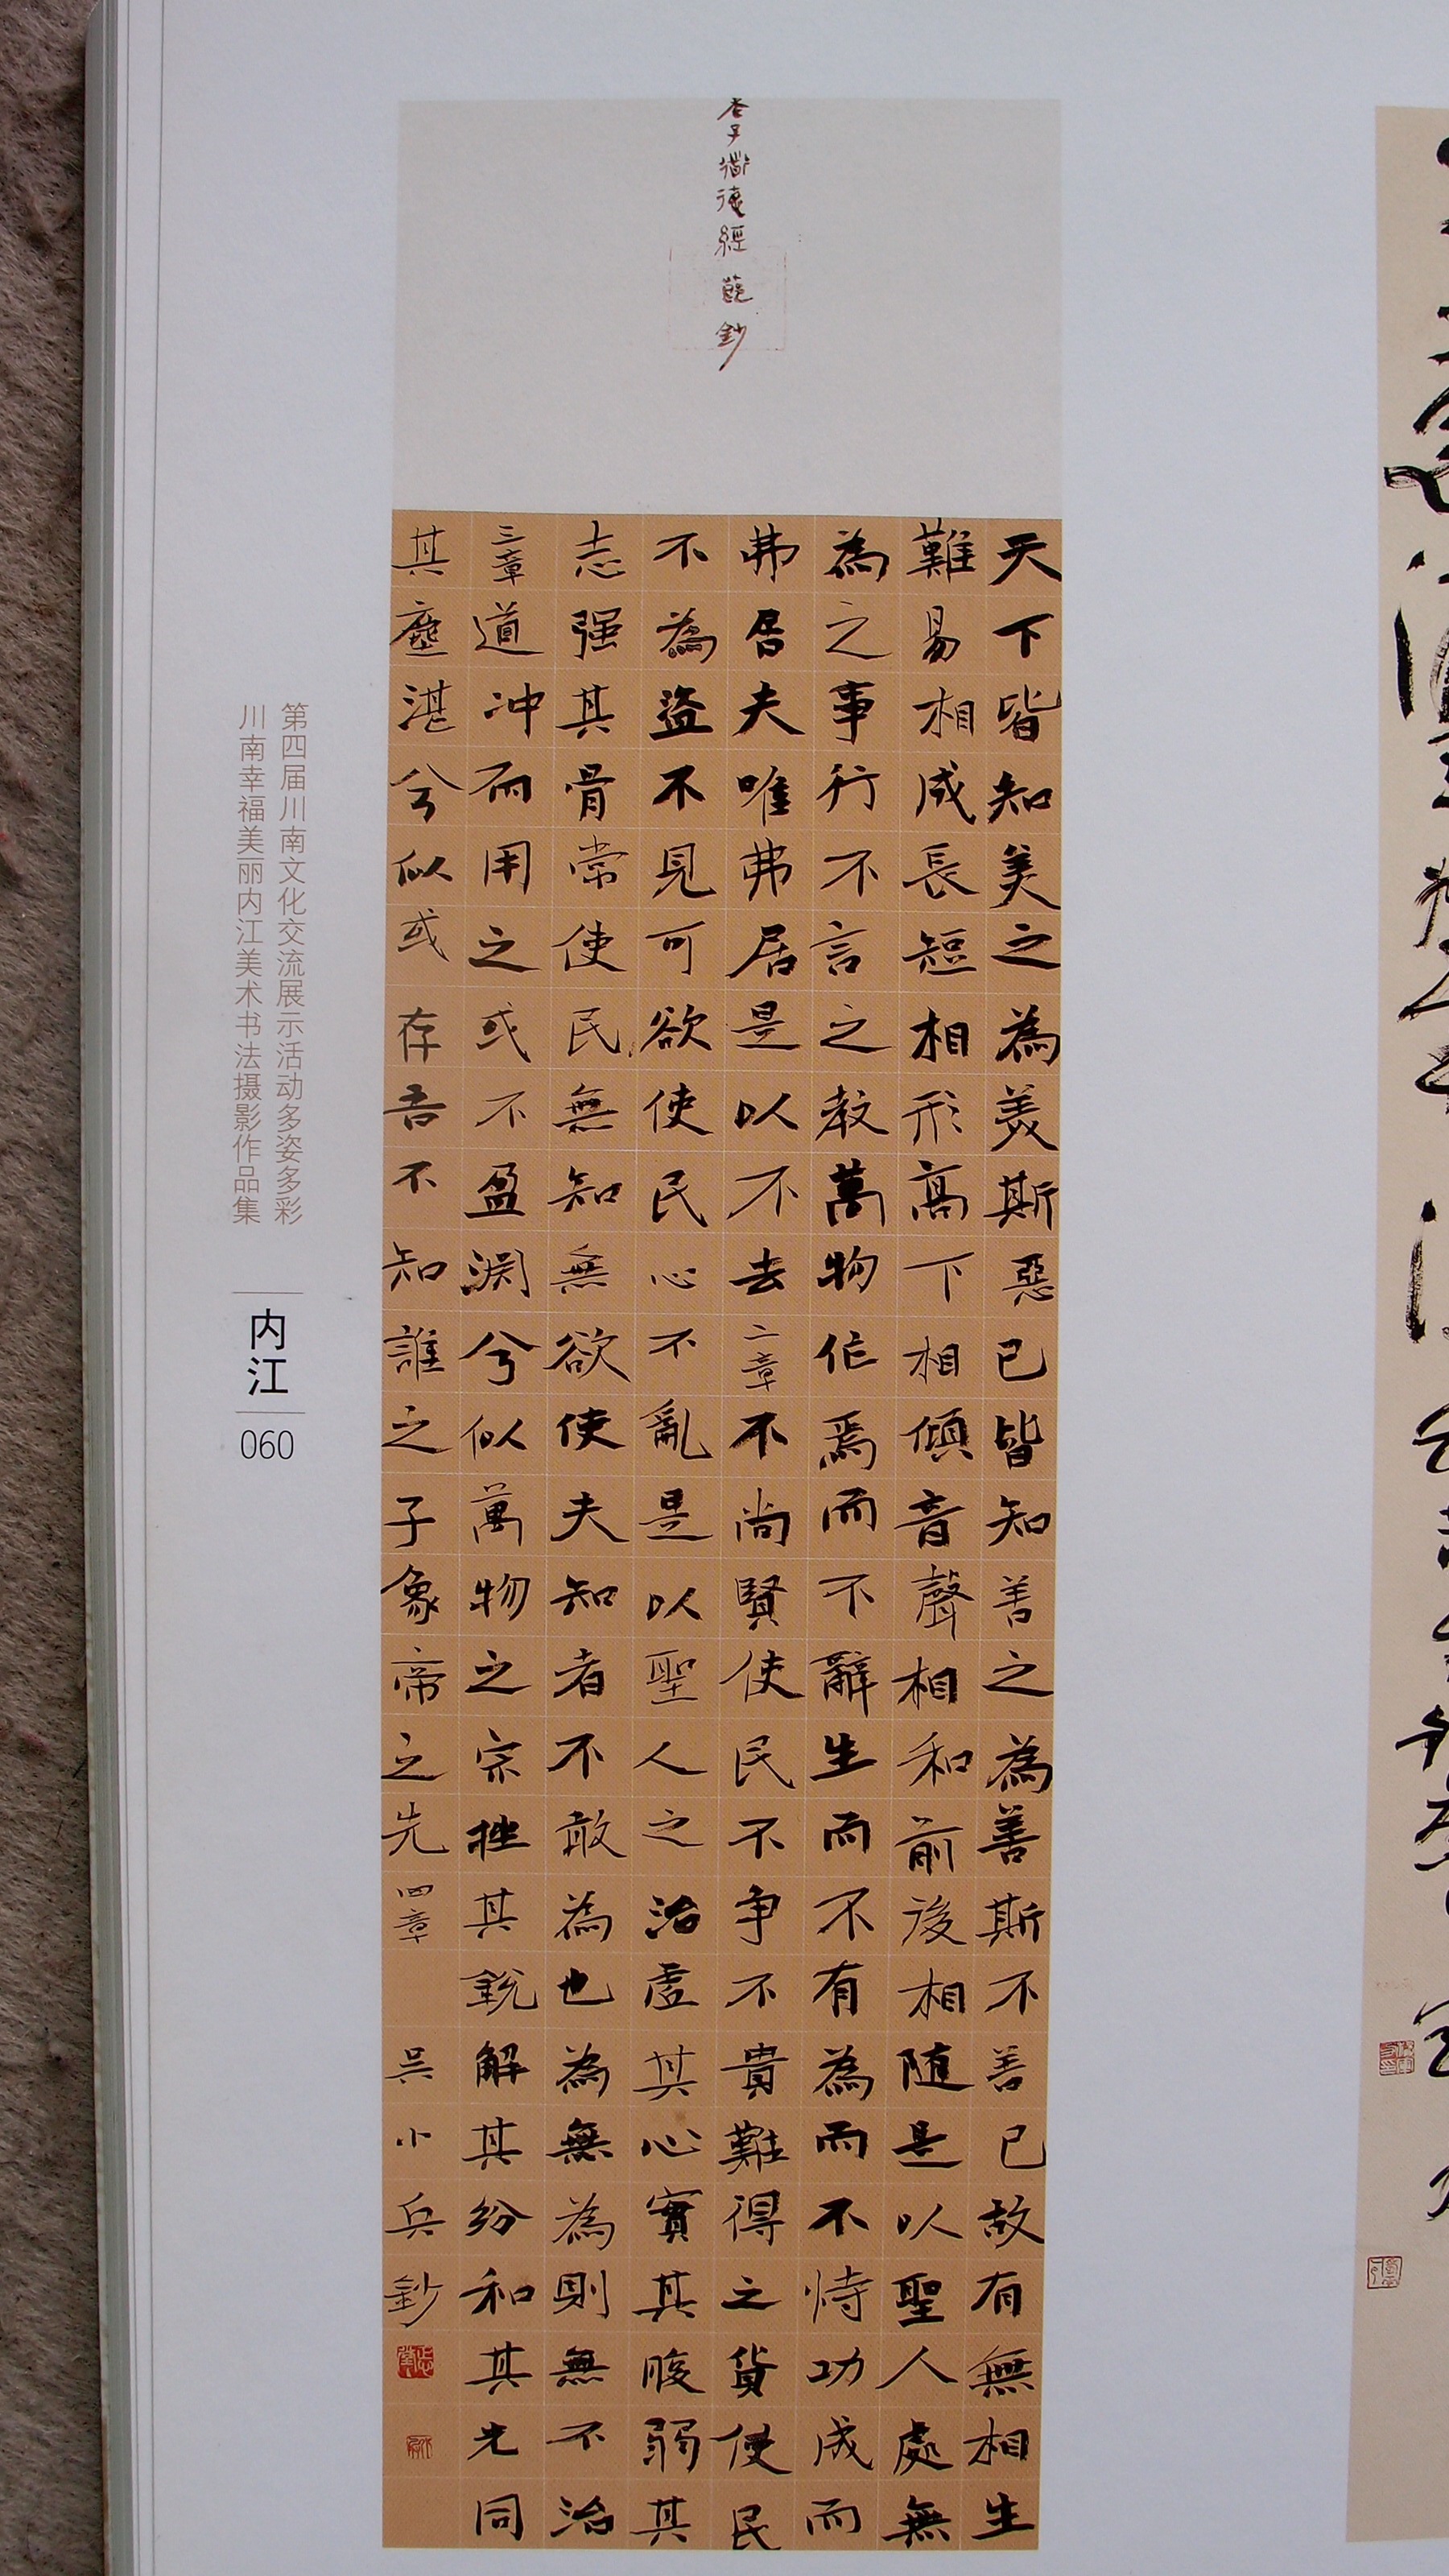 老子衜德經節鈔
天下皆知美之為美斯惡已皆知善之為善斯不善已故有無相生
難易相成長短相形高下相傾音聲相和前後相随是以聖人處無
為之事行不言之教萬物作焉而不辭生而不有為而不恃功成而
弗居夫唯弗居是以不去二章不尚賢使民不争不貴難得之貨使民
不為盗不見可欲使民心不亂是以聖人之治虛其心實其腹弱其
志强其骨常使民無知無欲使夫知者不敢為也為無為則無不治
三章道冲而用之或不盈淵兮似萬物之宗挫其銳解其紛和其光同
其塵湛兮似或存吾不知誰之子象帝之先四章 吳小兵鈔
第四届川南文化交流展示活动多姿多彩
川南幸福美丽内江美术书法摄影作品集
内江
060